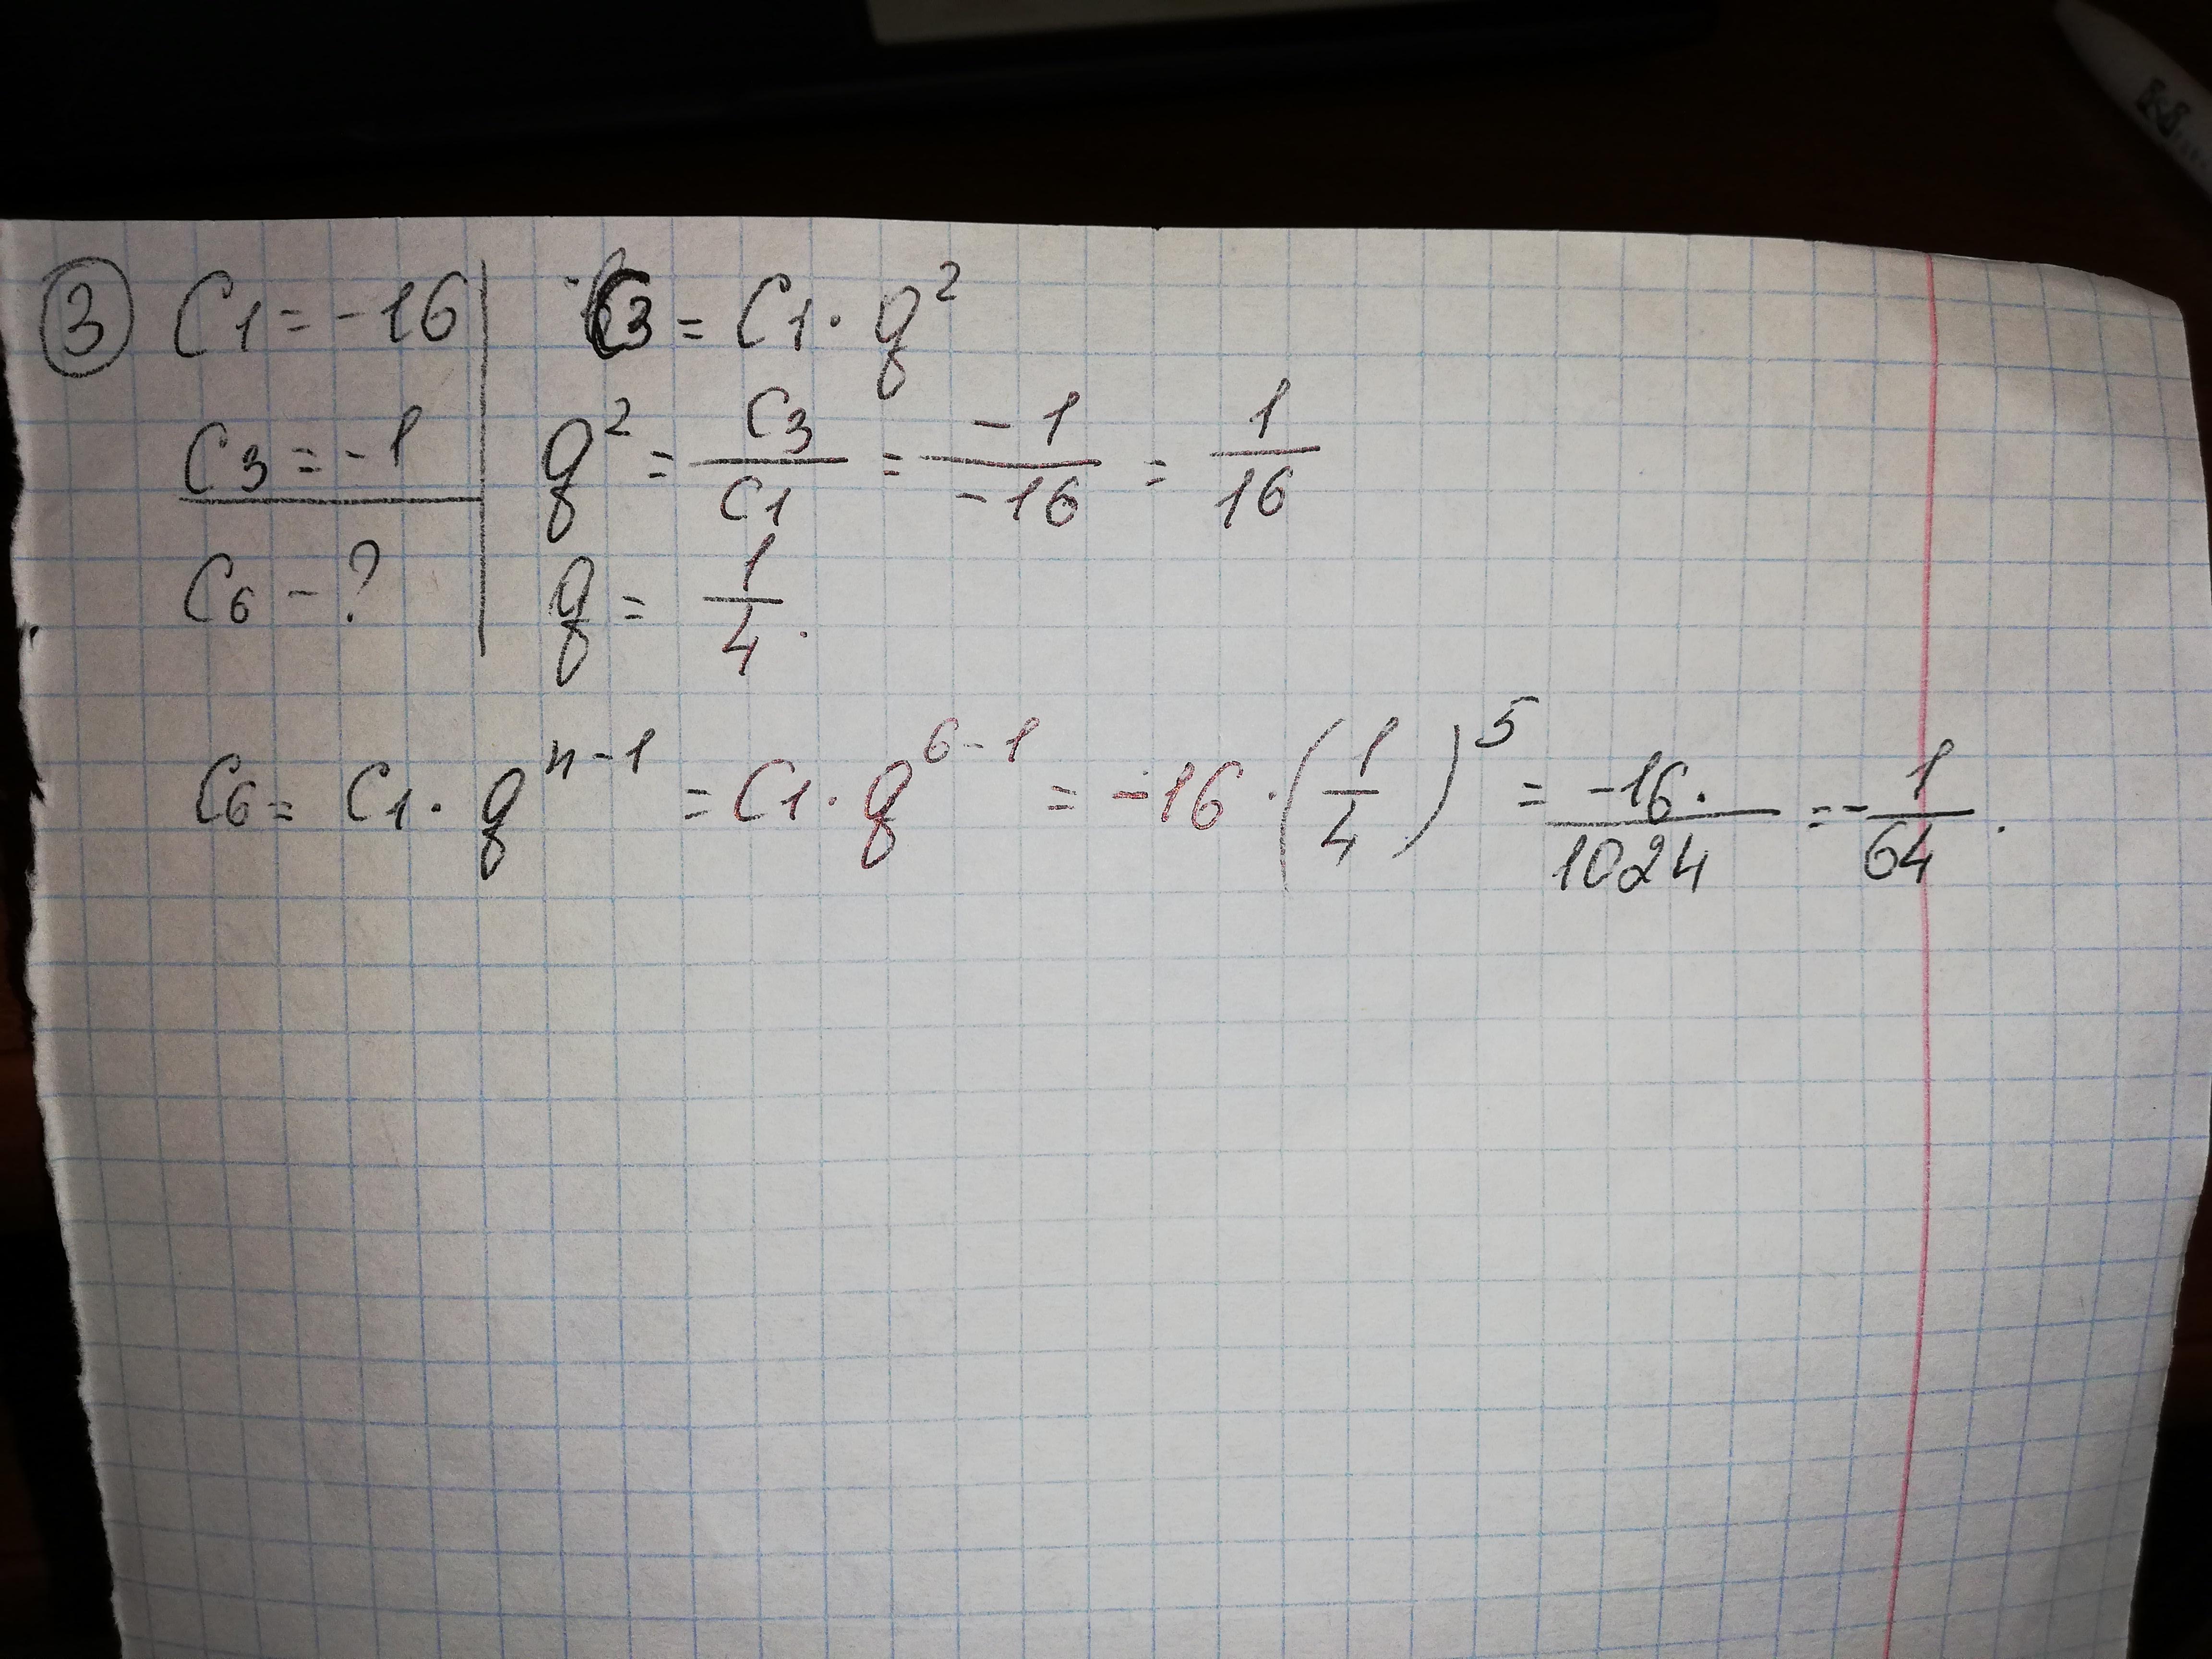 ③ C₁ = -16 | C₃ = C₁ · q²
C₃ = -1 | q² = C₃/C₁ = -1/-16 = 1/16
C₆ - ? | q = 1/4.
C₆ = C₁ · qⁿ⁻¹ = C₁ · q⁶⁻¹ = -16 · (1/4)⁵ = -16·/1024 = -1/64.